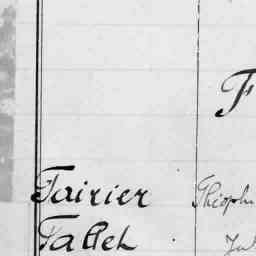 F
Fairier Théoph
Fallet Jul